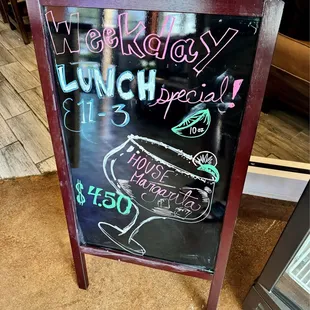 Weekday
LUNCH special!
11-3
10oz
HOUSE
Margarita
$4.50